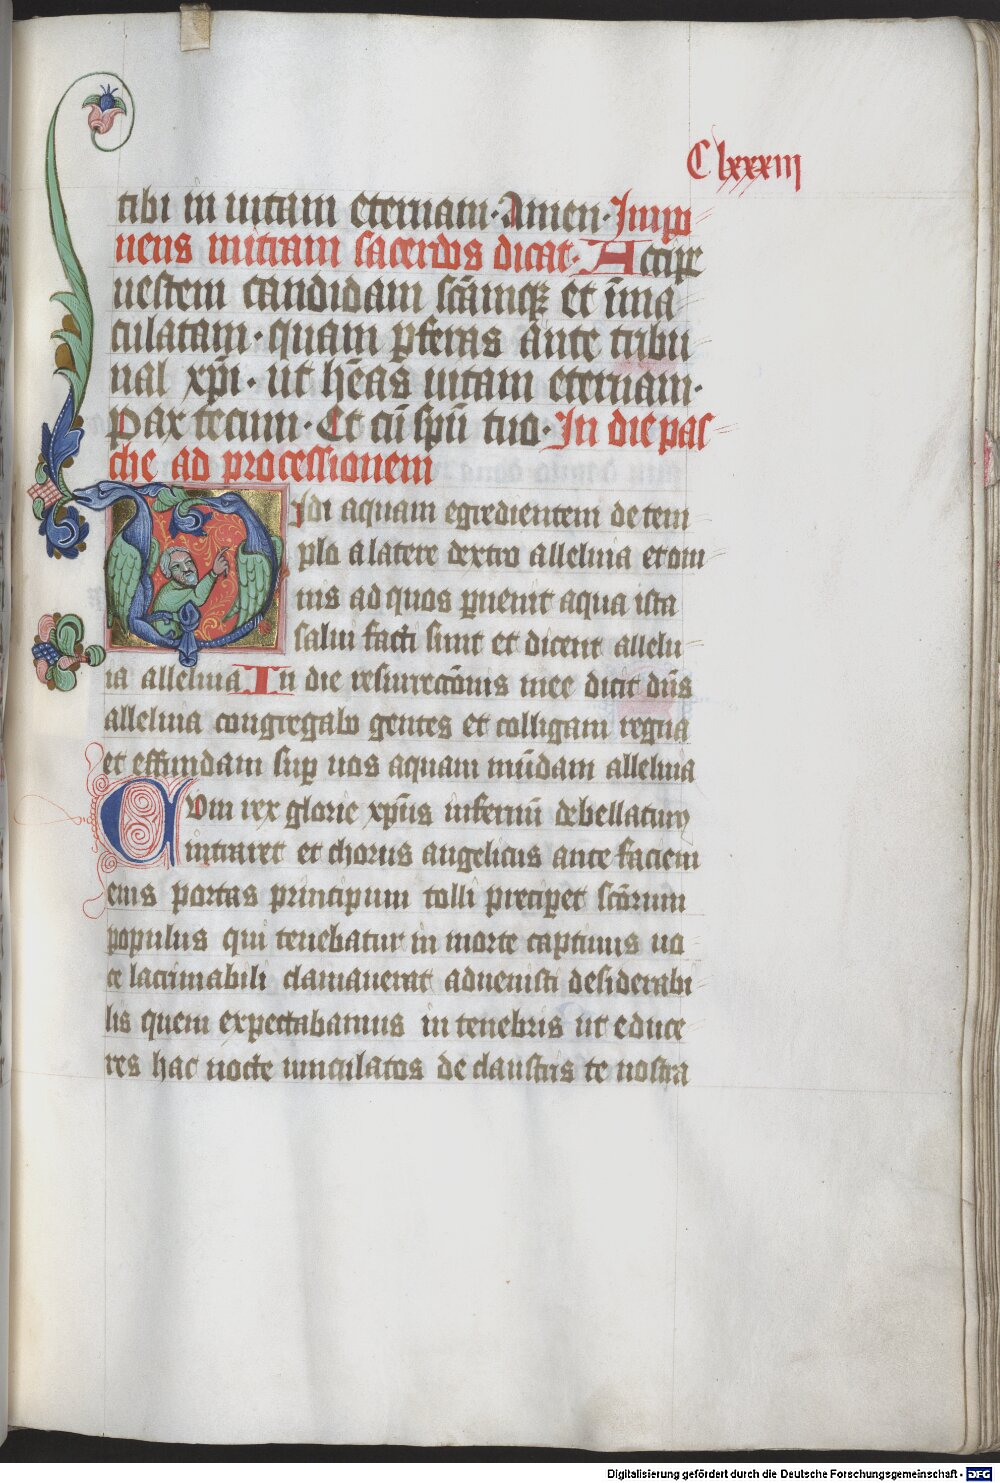 Clxxxiij
tibi in uitam eternam. Amen. Impo
nens mitram sacerdos dicat. Accipe
uestem candidam sc̄amqꝫ et īma
culatam. quam ꝑferas ante tribu
nal xp̄i. ut hēas uitam eternam.
Pax tecum. Et cū spū tuo. In die pas
che ad processionem
Vjdi aquam egredientem de tem
plo a latere dextro alleluia et om
nis ad quos ꝑuenit aqua ista
salui facti sunt et dicent allelu
ia alleluia In die resurrectōnis mee dicit dn̄s
alleluia congregabo gentes et colligam regna
et effundam suꝑ uos aquam mūdam alleluia
Cvm rex glorie xp̄us infernū debellaturꝰ
intraret et chorus angelicus ante faciem
eius portas principum tolli preciꝑet sc̄orum
populus qui tenebatur in morte captiuus uo
ce lacrimabili clamauerat aduenisti desiderabi
lis quem expectabamus in tenebris ut educe
res hac nocte uinculatos de claustris te nostra
Digitalisierung gefördert durch die Deutsche Forschungsgemeinschaft - DFG